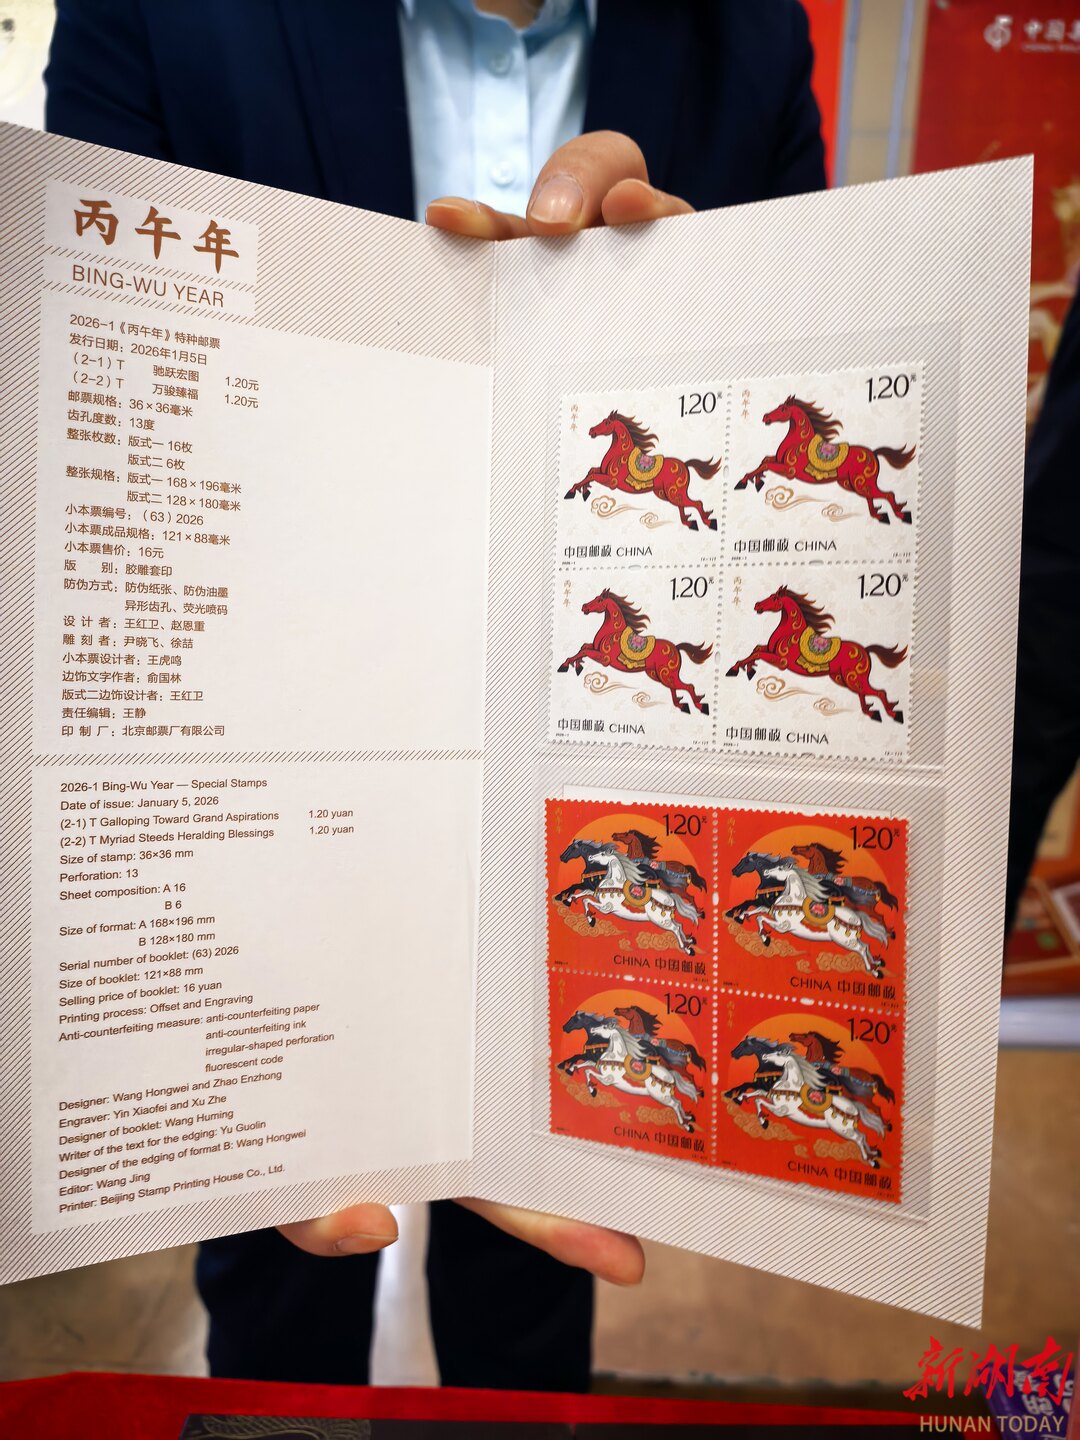 中国
丙午年
BING-WU YEAR
2026-1《丙午年》特种邮票
发行日期：2026年1月5日
（2-1）T 驰跃宏图 1.20元
（2-2）T 万骏臻福 1.20元
邮票规格：36×36毫米
齿孔度数：13度
整张枚数：版式一 16枚
版式二 6枚
整张规格：版式一 168×196毫米
版式二 128×180毫米
小本票编号：（63）2026
小本票成品规格：121×88毫米
小本票售价：16元
版 别：胶雕套印
防伪方式：防伪纸张、防伪油墨
异形齿孔、荧光喷码
设 计 者：王红卫、赵恩重
雕 刻 者：尹晓飞、徐喆
小本票设计者：王虎鸣
边饰文字作者：俞国林
版式二边饰设计者：王红卫
责任编辑：王静
印 制 厂：北京邮票厂有限公司
2026-1 Bing-Wu Year — Special Stamps
Date of issue: January 5, 2026
(2-1) T Galloping Toward Grand Aspirations 1.20 yuan
(2-2) T Myriad Steeds Heralding Blessings 1.20 yuan
Size of stamp: 36×36 mm
Perforation: 13
Sheet composition: A 16
B 6
Size of format: A 168×196 mm
B 128×180 mm
Serial number of booklet: (63) 2026
Size of booklet: 121×88 mm
Selling price of booklet: 16 yuan
Printing process: Offset and Engraving
Anti-counterfeiting measure: anti-counterfeiting paper
anti-counterfeiting ink
irregular-shaped perforation
fluorescent code
Designer: Wang Hongwei and Zhao Enzhong
Engraver: Yin Xiaofei and Xu Zhe
Designer of booklet: Wang Huming
Writer of the text for the edging: Yu Guolin
Designer of the edging of format B: Wang Hongwei
Editor: Wang Jing
Printer: Beijing Stamp Printing House Co., Ltd.
丙午年 1.20元
中国邮政 CHINA
丙午年 1.20元
中国邮政 CHINA
丙午年 1.20元
中国邮政 CHINA
丙午年 1.20元
中国邮政 CHINA
丙午年 1.20元
CHINA 中国邮政
丙午年 1.20元
CHINA 中国邮政
丙午年 1.20元
CHINA 中国邮政
丙午年 1.20元
CHINA 中国邮政
新湖南
HUNAN TODAY